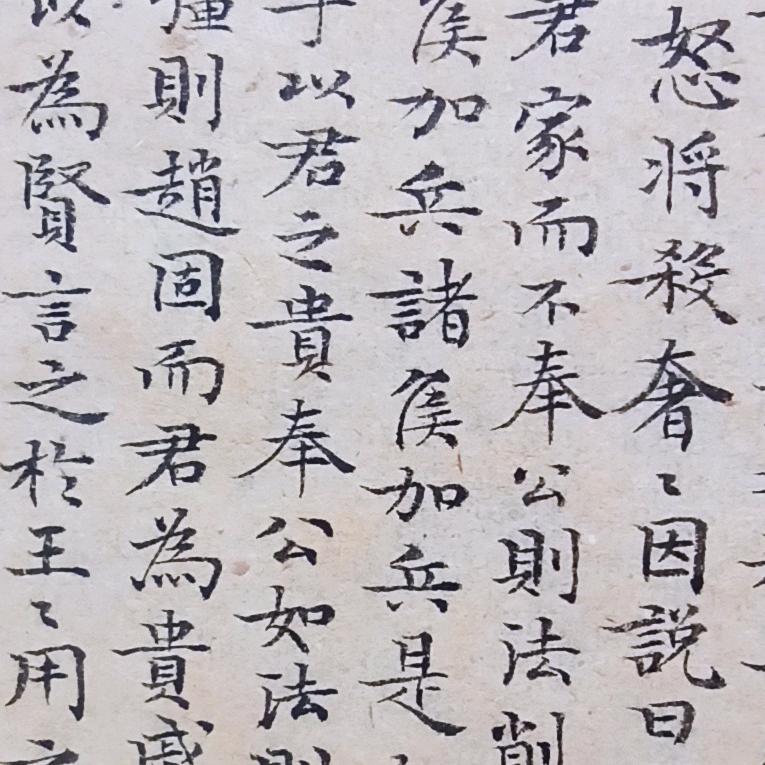 怒将殺奢〻因説曰
君家而不奉公則法削
侯加兵諸侯加兵是
乎以君之貴奉公如法則
彊則趙固而君為貴戚
以為賢言之於王〻用之